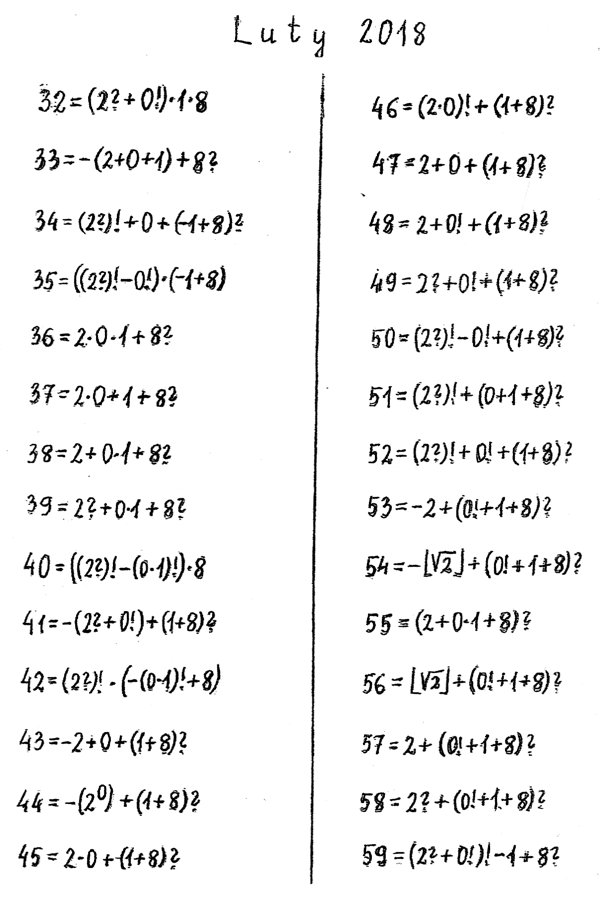 Luty 2018
32=(2?+0!)·1·8
33=-(2+0+1)+8?
34=(2?)!+0+(-1+8)?
35=((2?)!-0!)·(-1+8)
36=2·0·1+8?
37=2·0+1+8?
38=2+0·1+8?
39=2?+0·1+8?
40=((2?)!-(0·1)!)·8
41=-(2?+0!)+(1+8)?
42=(2?)!·(-(0·1)!+8)
43=-2+0+(1+8)?
44=-(2⁰)+(1+8)?
45=2·0+(1+8)?
46=(2·0)!+(1+8)?
47=2+0+(1+8)?
48=2+0!+(1+8)?
49=2?+0!+(1+8)?
50=(2?)!-0!+(1+8)?
51=(2?)!+(0+1+8)?
52=(2?)!+0!+(1+8)?
53=-2+(0!+1+8)?
54=-⌊√2⌋+(0!+1+8)?
55=(2+0·1+8)?
56=⌊√2⌋+(0!+1+8)?
57=2+(0!+1+8)?
58=2?+(0!+1+8)?
59=(2?+0!)!-1+8?